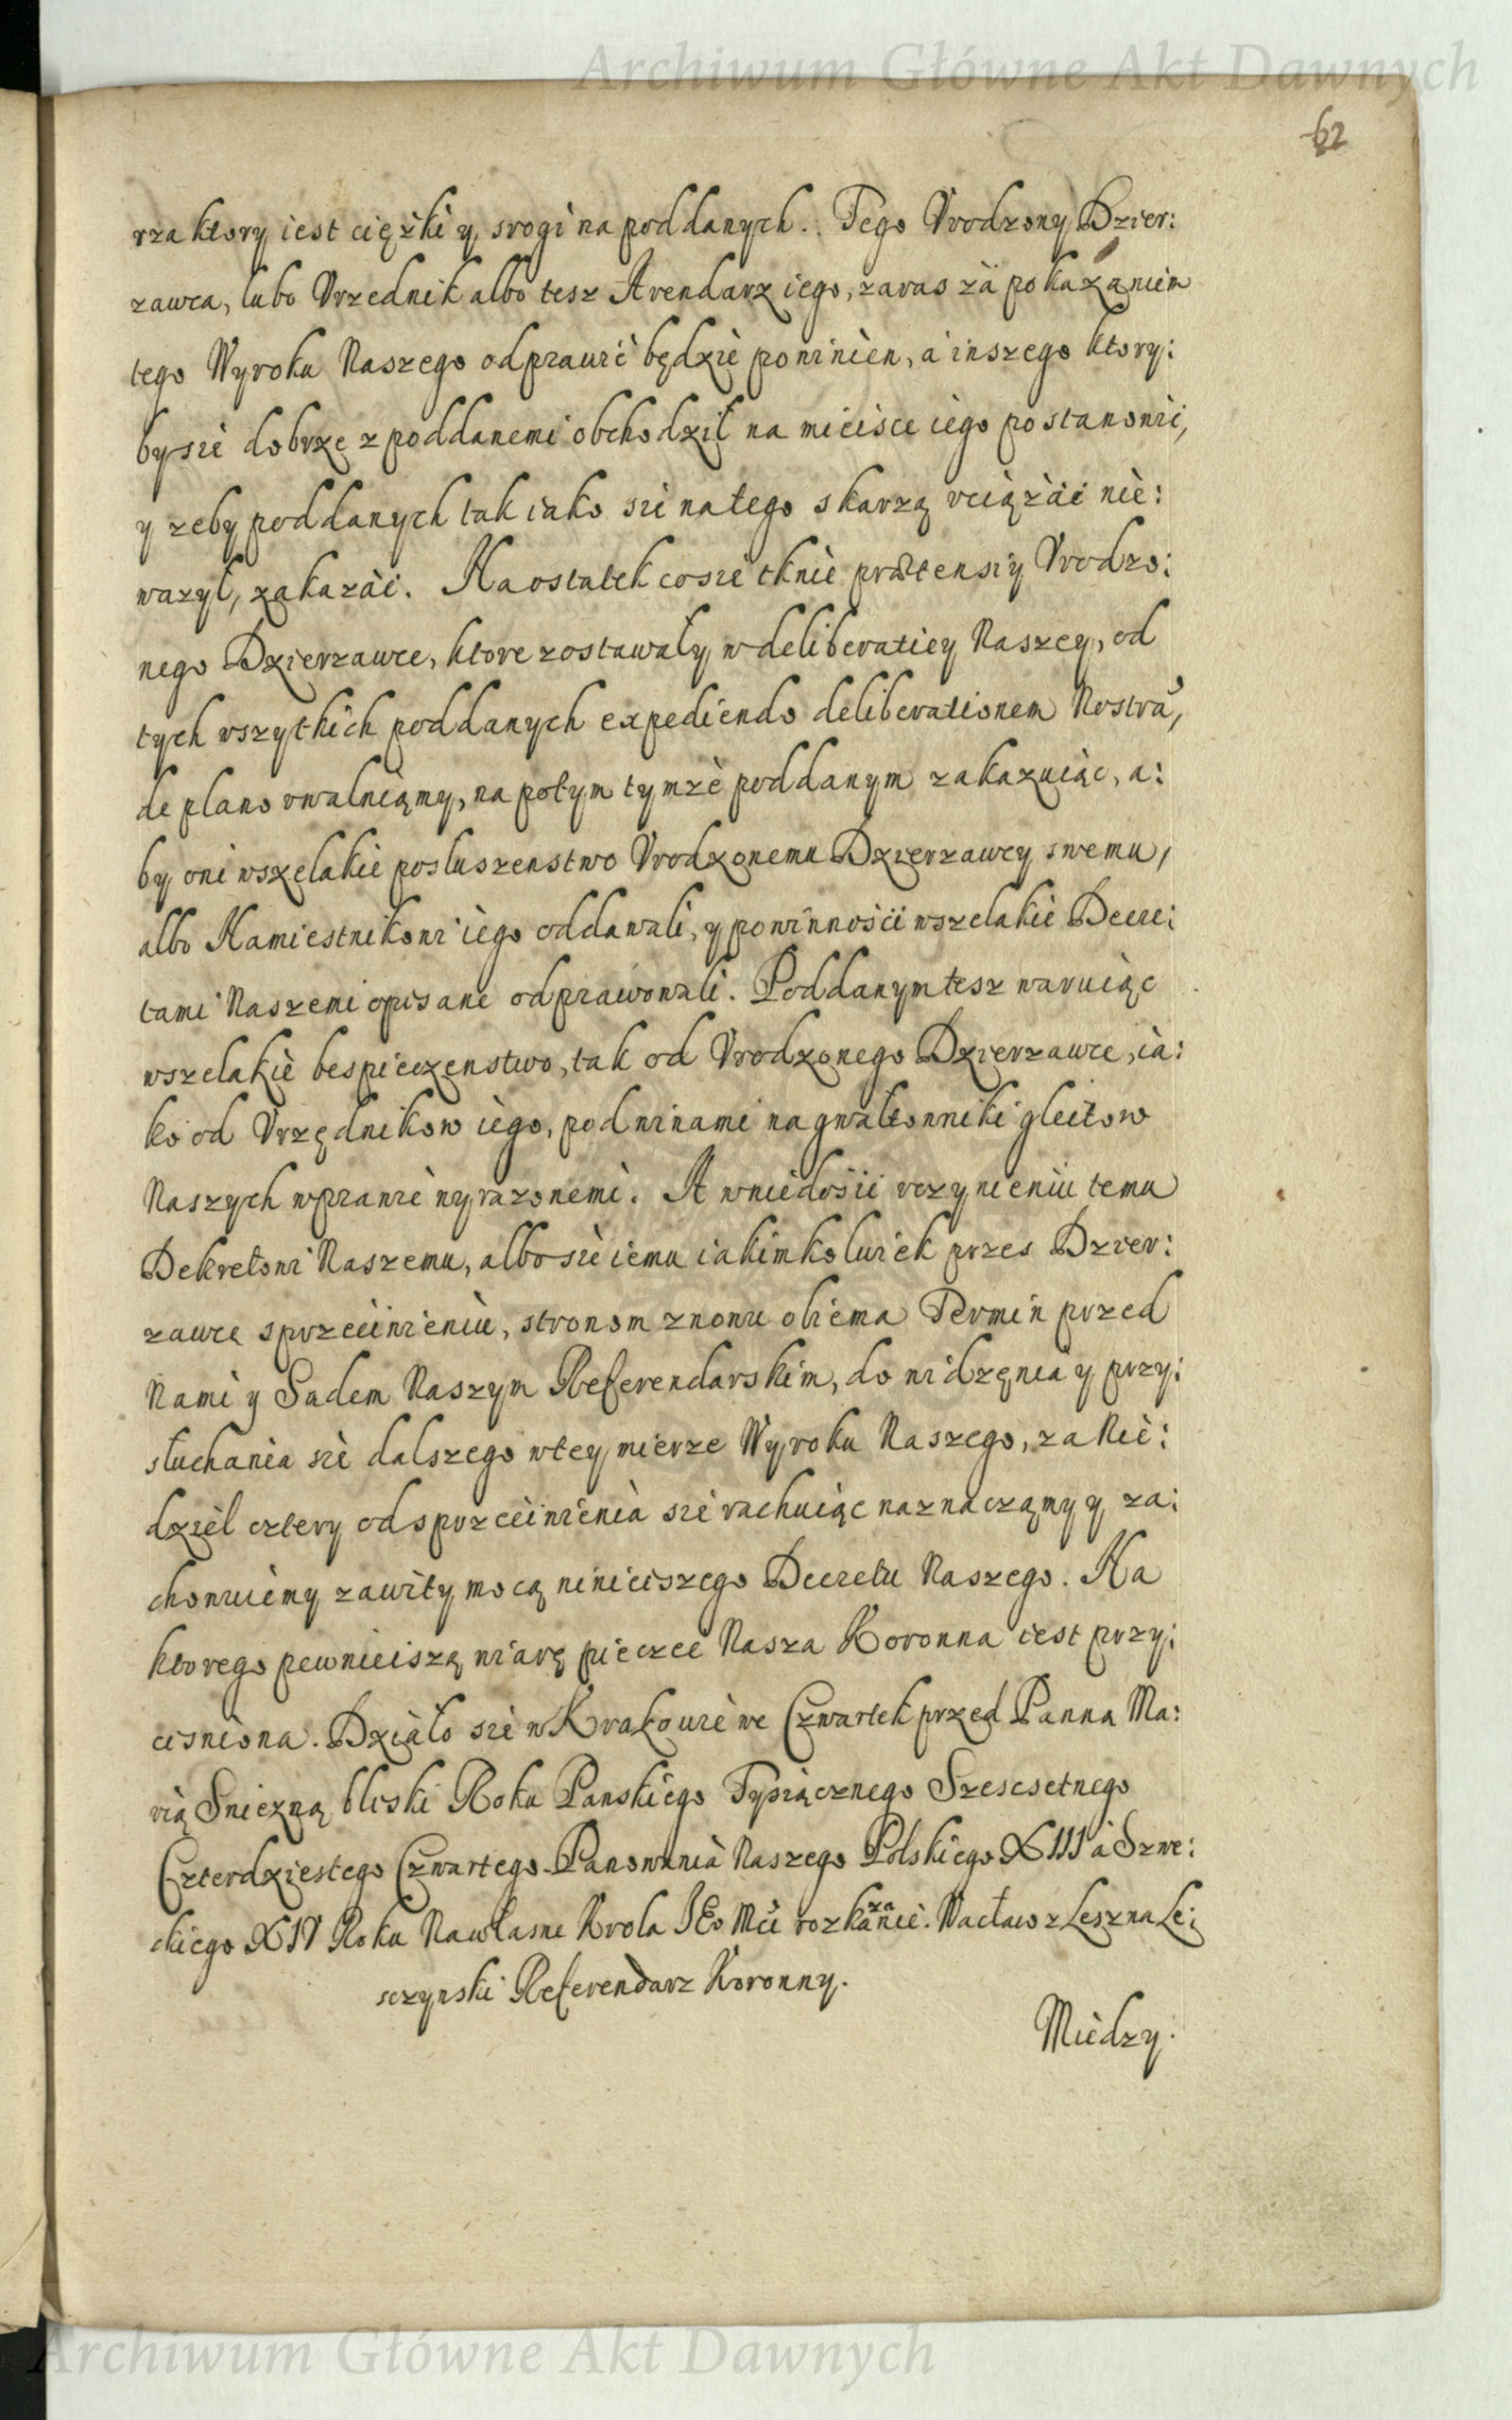 Archiwum Główne Akt Dawnych
62
rza ktory iest cięzki y srogi na poddanych. Tego Vrodzony Dzier:
zawca, lubo Vrzednik albo tesz Arendarz iego, zaras za pokazanim
tego Wyroku Naszego odprawić będzie powinien, a inszego ktory:
by sie dobrze z poddanemi obchodził na mieisce iego postanowić,
y zeby poddanych tak iako sie na tego skarzą vciązać nie:
wazył, zakazać. Na ostatek co sie tknie prætensiy Vrodzo:
nego Dzierzawce, ktore zostawały w deliberatiey Naszey, od
tych wszytkich poddanych expediendo deliberationem Nostrā,
de plano vwalniamy, na potym tymze poddanym zakazuiąc, a:
by oni wszelakie posluszenstwo Vrodzonemu Dzierzawcy swemu,
albo Namiestnikowi iego oddawali, y powinnosci wszelakie Decre:
tami Naszemi opisane odprawowali. Poddanym tesz waruiąc
wszelakie bespieczenstwo, tak od Vrodzonego Dzierzawce, ia:
ko od Vrzędnikow iego, pod winami na gwałtowniki gleitow
Naszych w prawie wyrazonemi. A w niedosić vczynieniu temu
Dekretowi Naszemu, albo sie iemu iakimkolwiek przes Dzier:
zawcę sprzeciwieniu, stronom znowu obiema Termin przed
Nami y Sadem Naszym Referendarskim, do widzęnia y przy:
słuchania sie dalszego w tey mierze Wyroku Naszego, za Nie:
dziel cztery od sprzeciwienia sie rachuiąc naznaczamy y za:
chowuiemy zawity mocą ninieiszego Decretu Naszego. Na
ktorego pewnieiszą wiarę pieczec Nasza Koronna iest przy:
cisniona. Działo sie w Krakowie we Czwartek przed Panna Ma:
rią Sniezną bliski Roku Panskiego Tysiącznego Szescsetnego
Czterdziestego Czwartego. Panowania Naszego Polskiego XIII a Szwe:
ckiego XIV Roku Na własne Krola IEo Mći rozkazanie. Wacław z Leszna Le:
sczynski Referendarz Koronny.
Miedzy.
Archiwum Główne Akt Dawnych